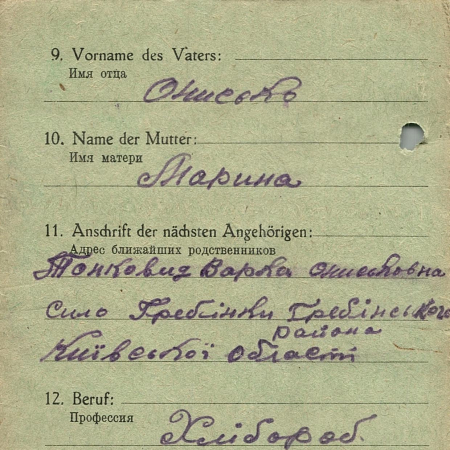 9. Vorname des Vaters:
Имя отца
Онисько
10. Name der Mutter:
Имя матери
Марина
11. Anschrift der nächsten Angehörigen:
Адрес ближайших родственников
Танковид Варка Ониськовна
Село Гребінки Гребінського
району
Київської області
12. Beruf:
Профессия
Хлібороб.